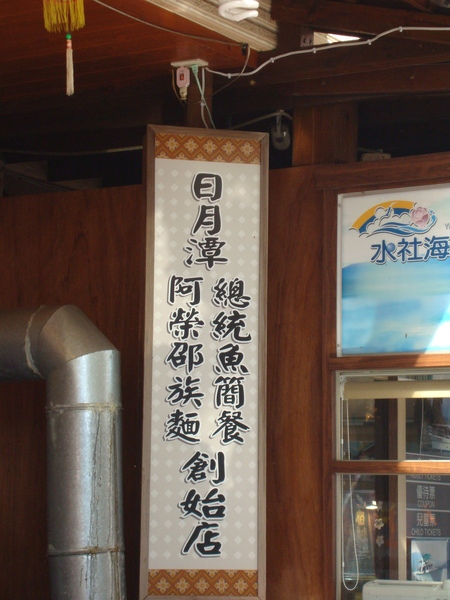 日月潭
總統魚簡餐
阿榮邵族麵
創始店
水社海